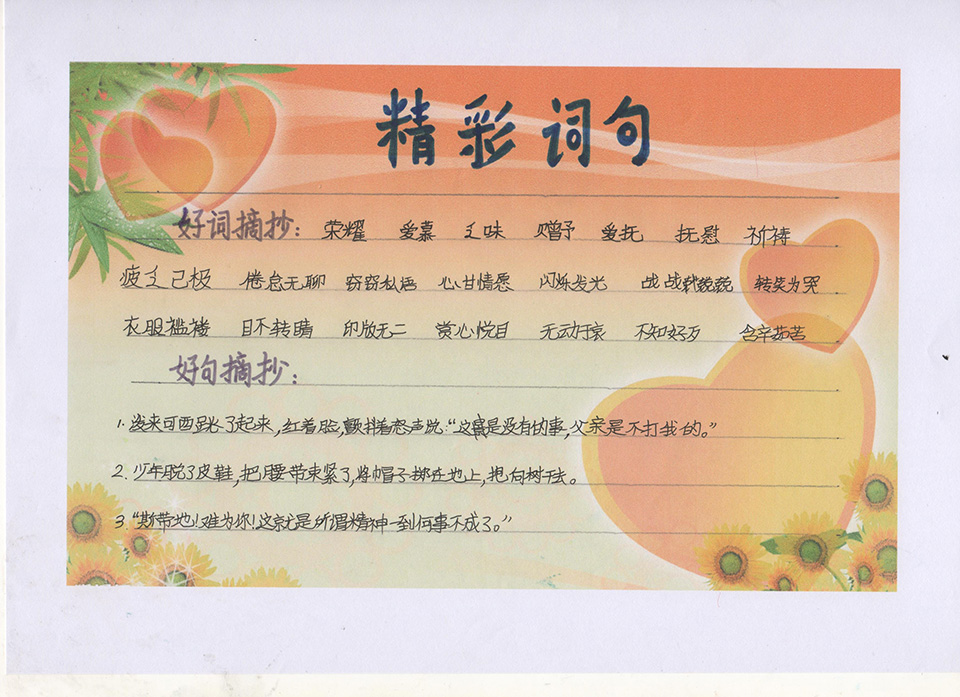 精彩词句
好词摘抄： 荣耀 爱慕 乏味 赠予 爱抚 抚慰 祈祷
疲乏已极 倦怠无聊 窃窃私语 心甘情愿 闪烁发光 战战兢兢 转笑为哭
衣服褴褛 目不转睛 印版无二 赏心悦目 无动于衷 不知好歹 含辛茹苦
好句摘抄：
1. 泼来可西跳了起来,红着脸,颤抖着怒声说:“这是没有的事,父亲是不打我的。”
2. 少年脱了皮鞋,把腰带束紧了,将帽子掷在地上,抱向树干去。
3. “斯带地!难为你!这就是所谓精神一到何事不成了。”